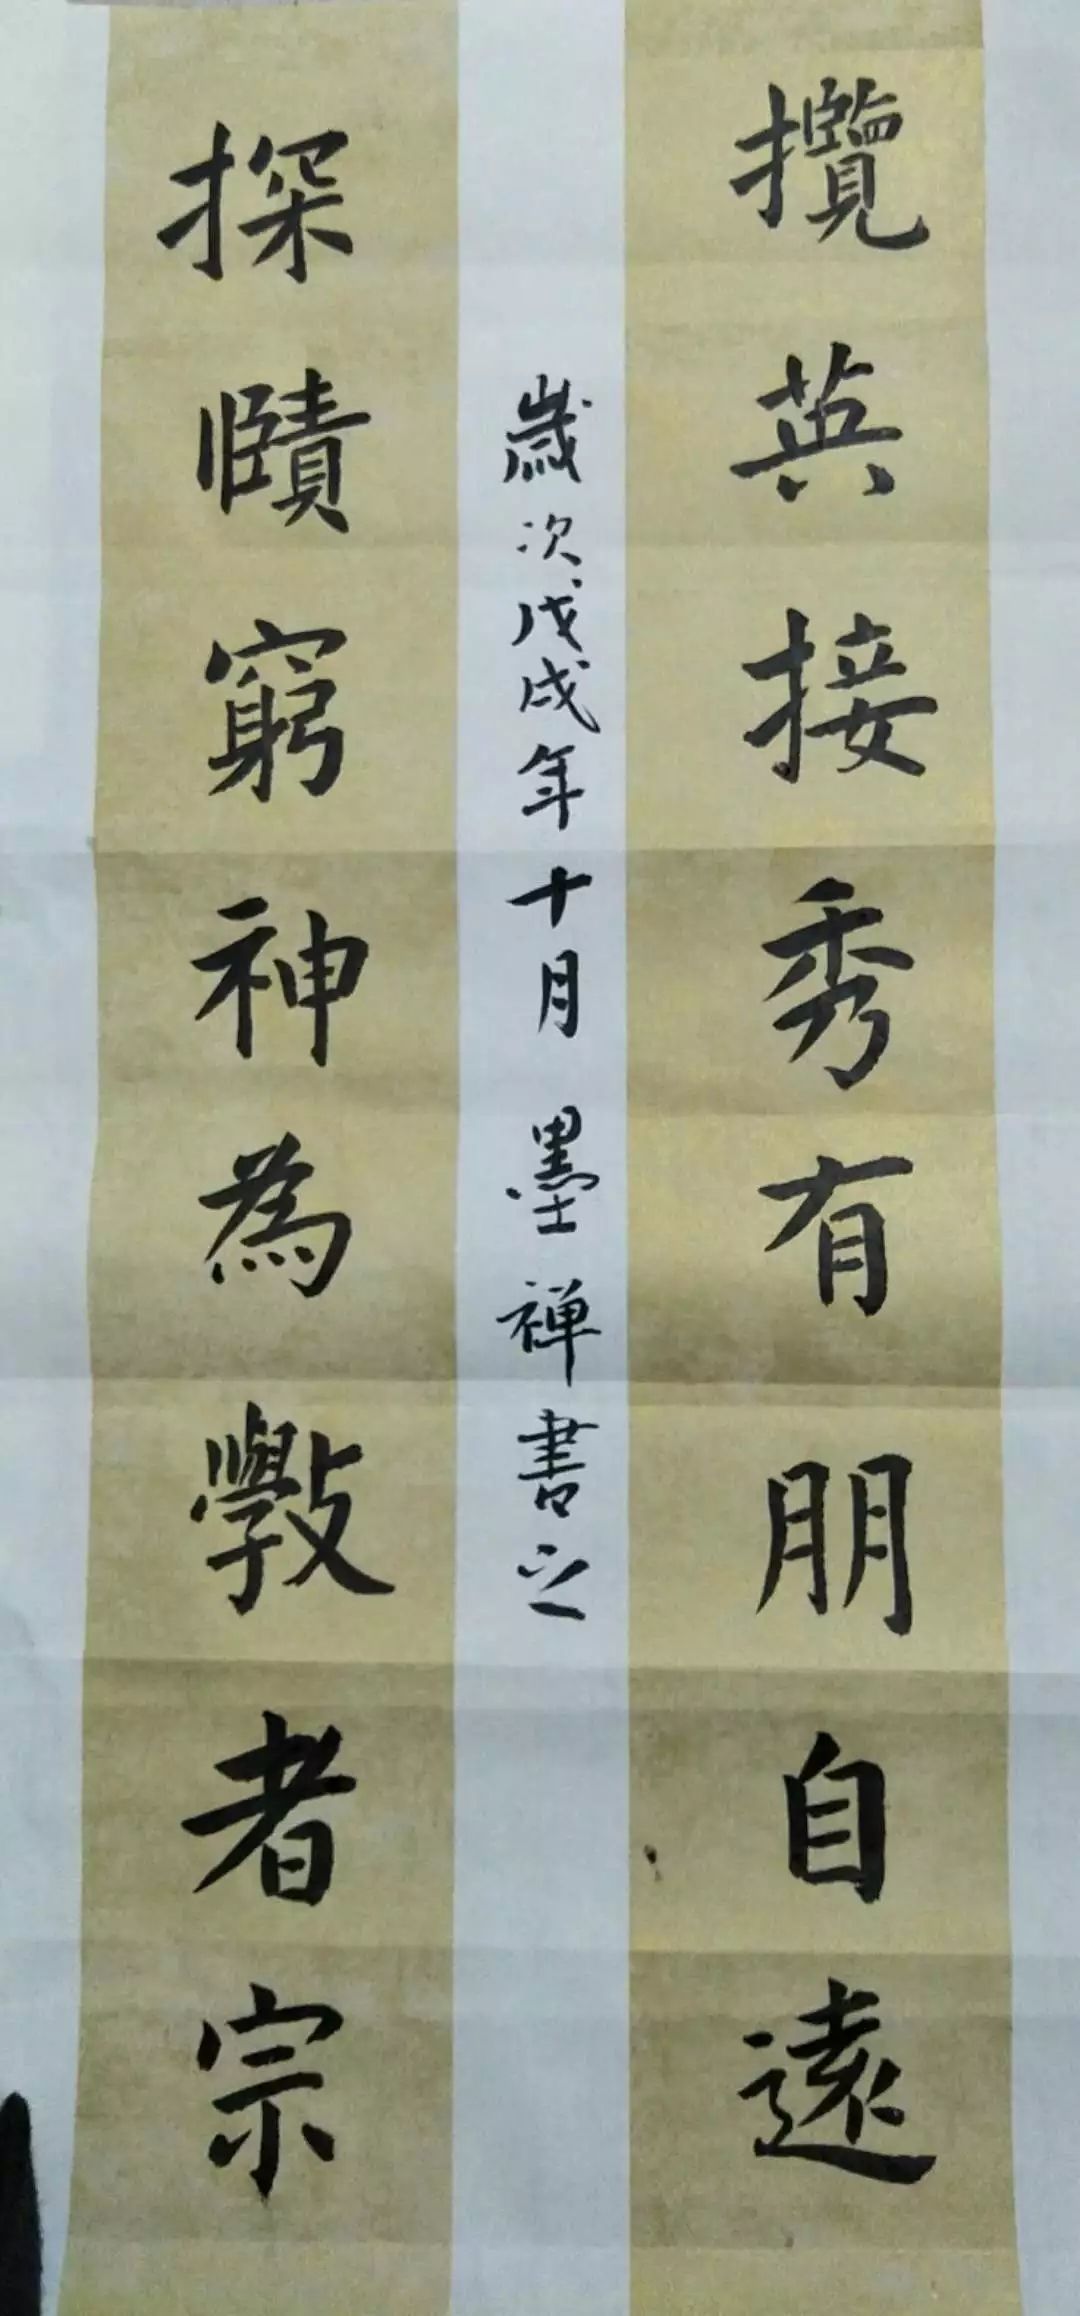 攬英接秀有朋自遠
探賾窮神為斅者宗
歲次戊戌年十月墨禅書之